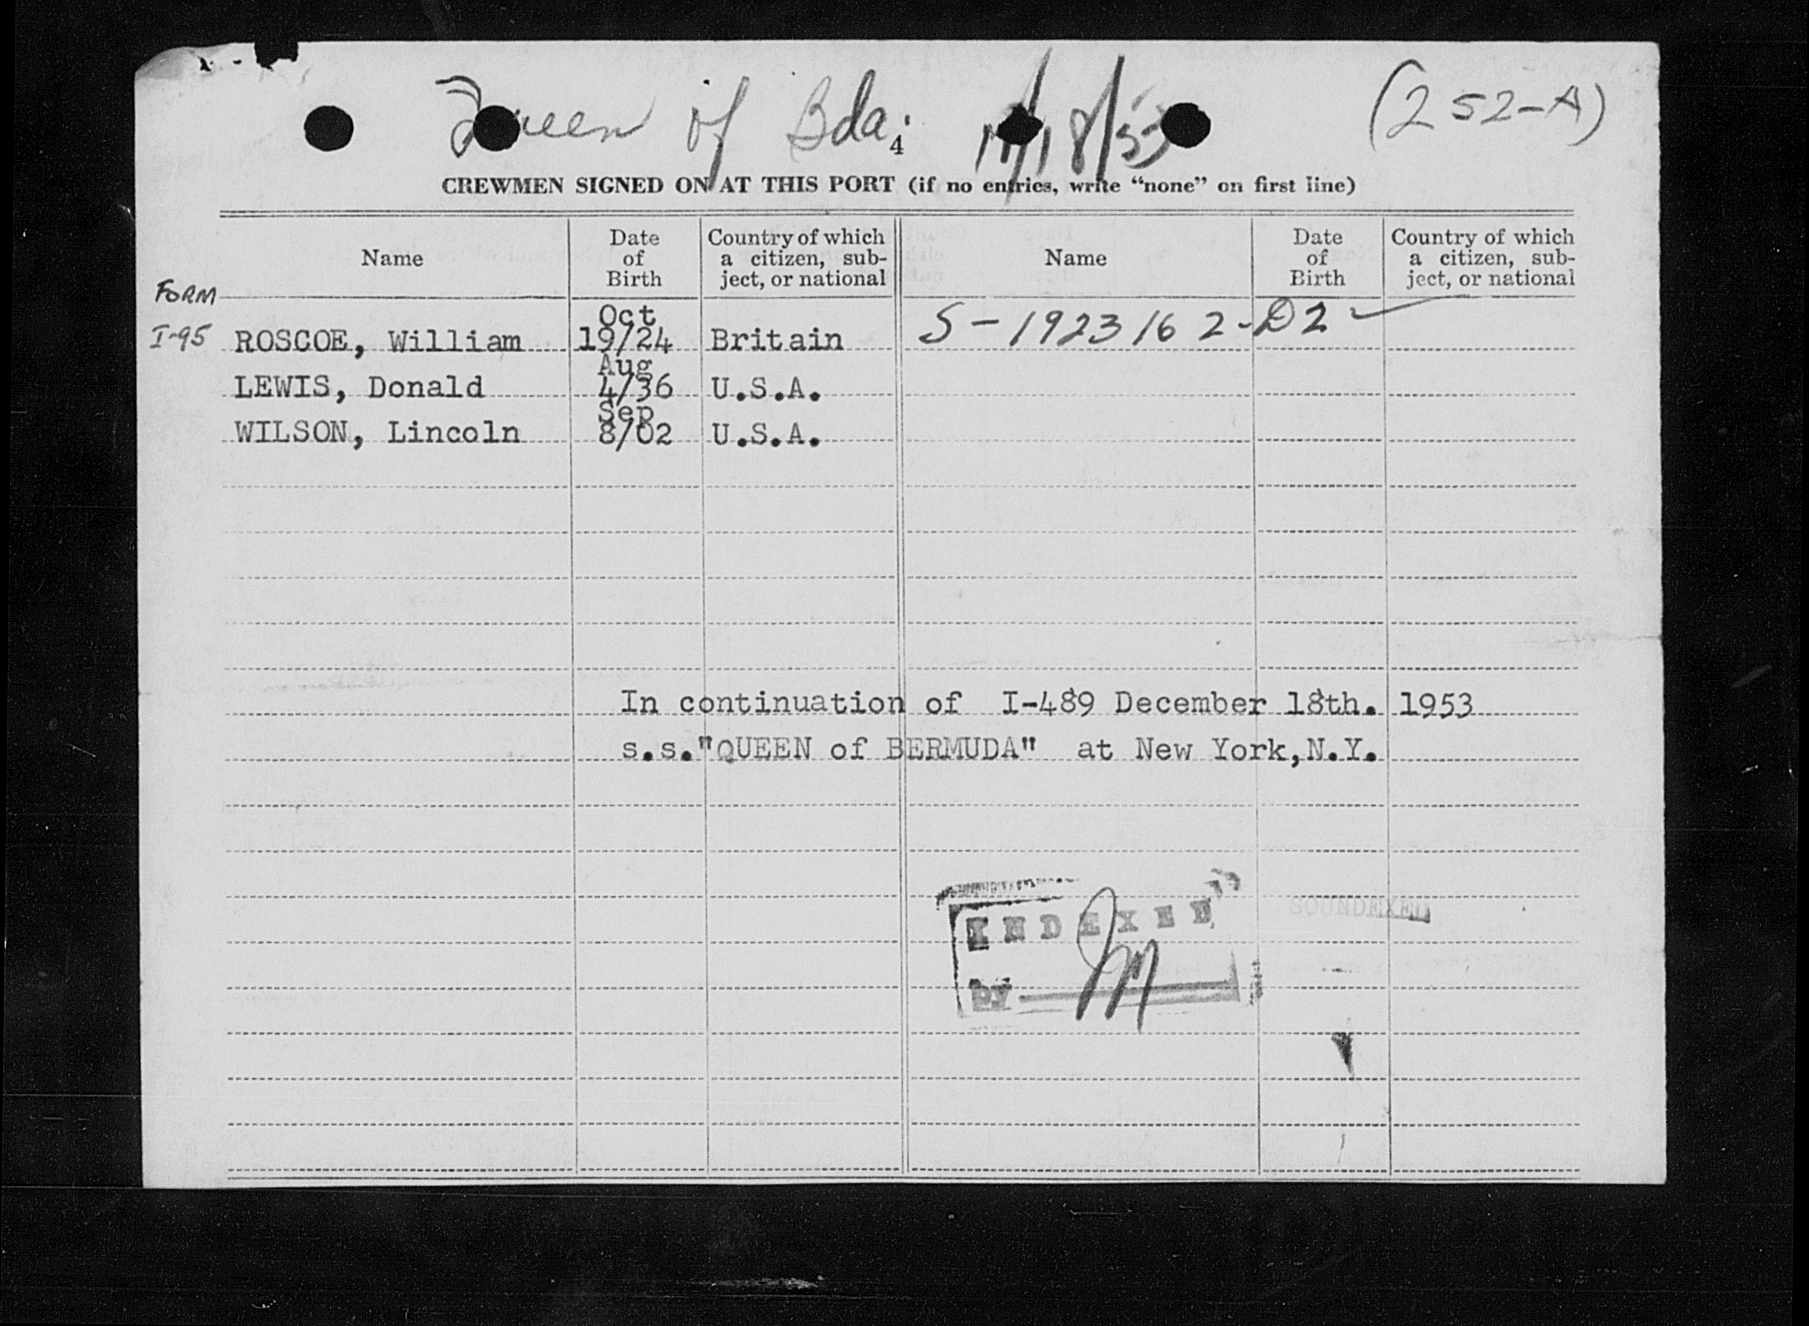 Queen of Bda. (252-A)
4
CREWMEN SIGNED ON AT THIS PORT (if no entries, write “none” on first line)
Name Date of Birth Country of which a citizen, sub-ject, or national Name Date of Birth Country of which a citizen, sub-ject, or national
FORM
I-95
ROSCOE, William Oct 19/24 Britain S-1923162-D2
LEWIS, Donald Aug 4/36 U.S.A.
WILSON, Lincoln Sep 8/02 U.S.A.
In continuation of I-489 December 18th. 1953
s.s."QUEEN of BERMUDA" at New York,N.Y.
INDEXED SOUNDEXED
by M